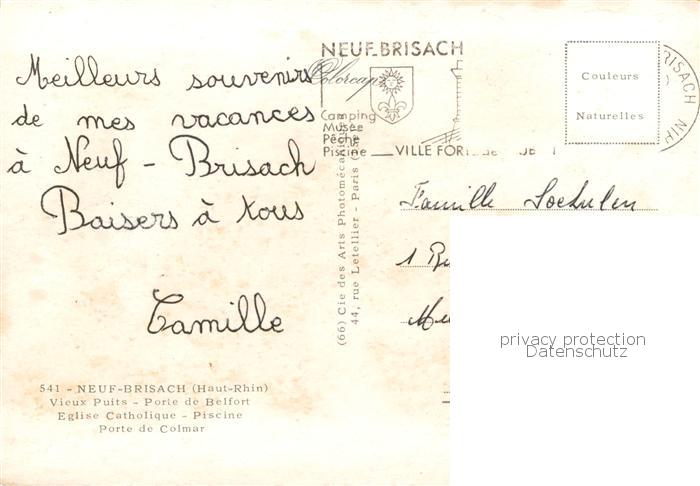 Meilleurs souvenirs
de mes vacances
à Neuf - Brisach
Baisers à tous
Camille
541 - NEUF-BRISACH (Haut-Rhin)
Vieux Puits - Porte de Belfort
Eglise Catholique - Piscine
Porte de Colmar
(66) Cie des Arts Photomécaniques
44, rue Letellier - Paris
NEUF-BRISACH
Camping
Musée
Pêche
Piscine
VILLE
Couleurs
Naturelles
BRISACH
Famille
1
privacy protection
Datenschutz